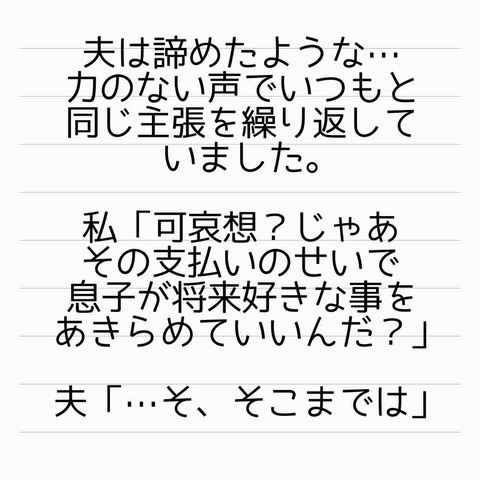 夫は諦めたような…
力のない声でいつもと
同じ主張を繰り返して
いました。
私「可哀想？じゃあ
その支払いのせいで
息子が将来好きな事を
あきらめていいんだ？」
夫「…そ、そこまでは」